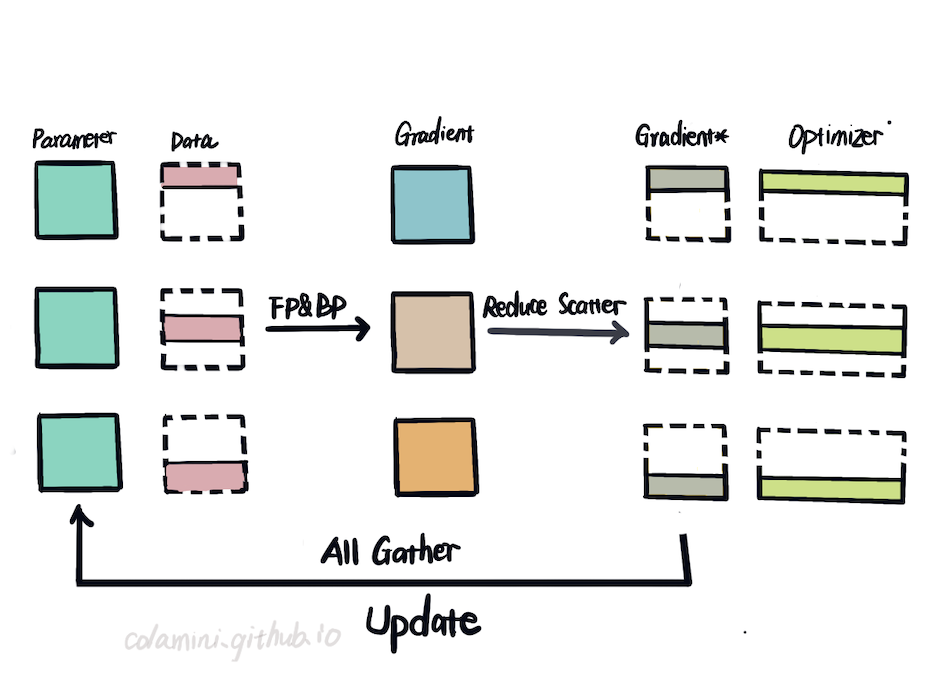 Parameter
Data
Gradient
Gradient*
Optimizer
FP&BP
Reduce Scatter
All Gather
Update
colamini.github.io